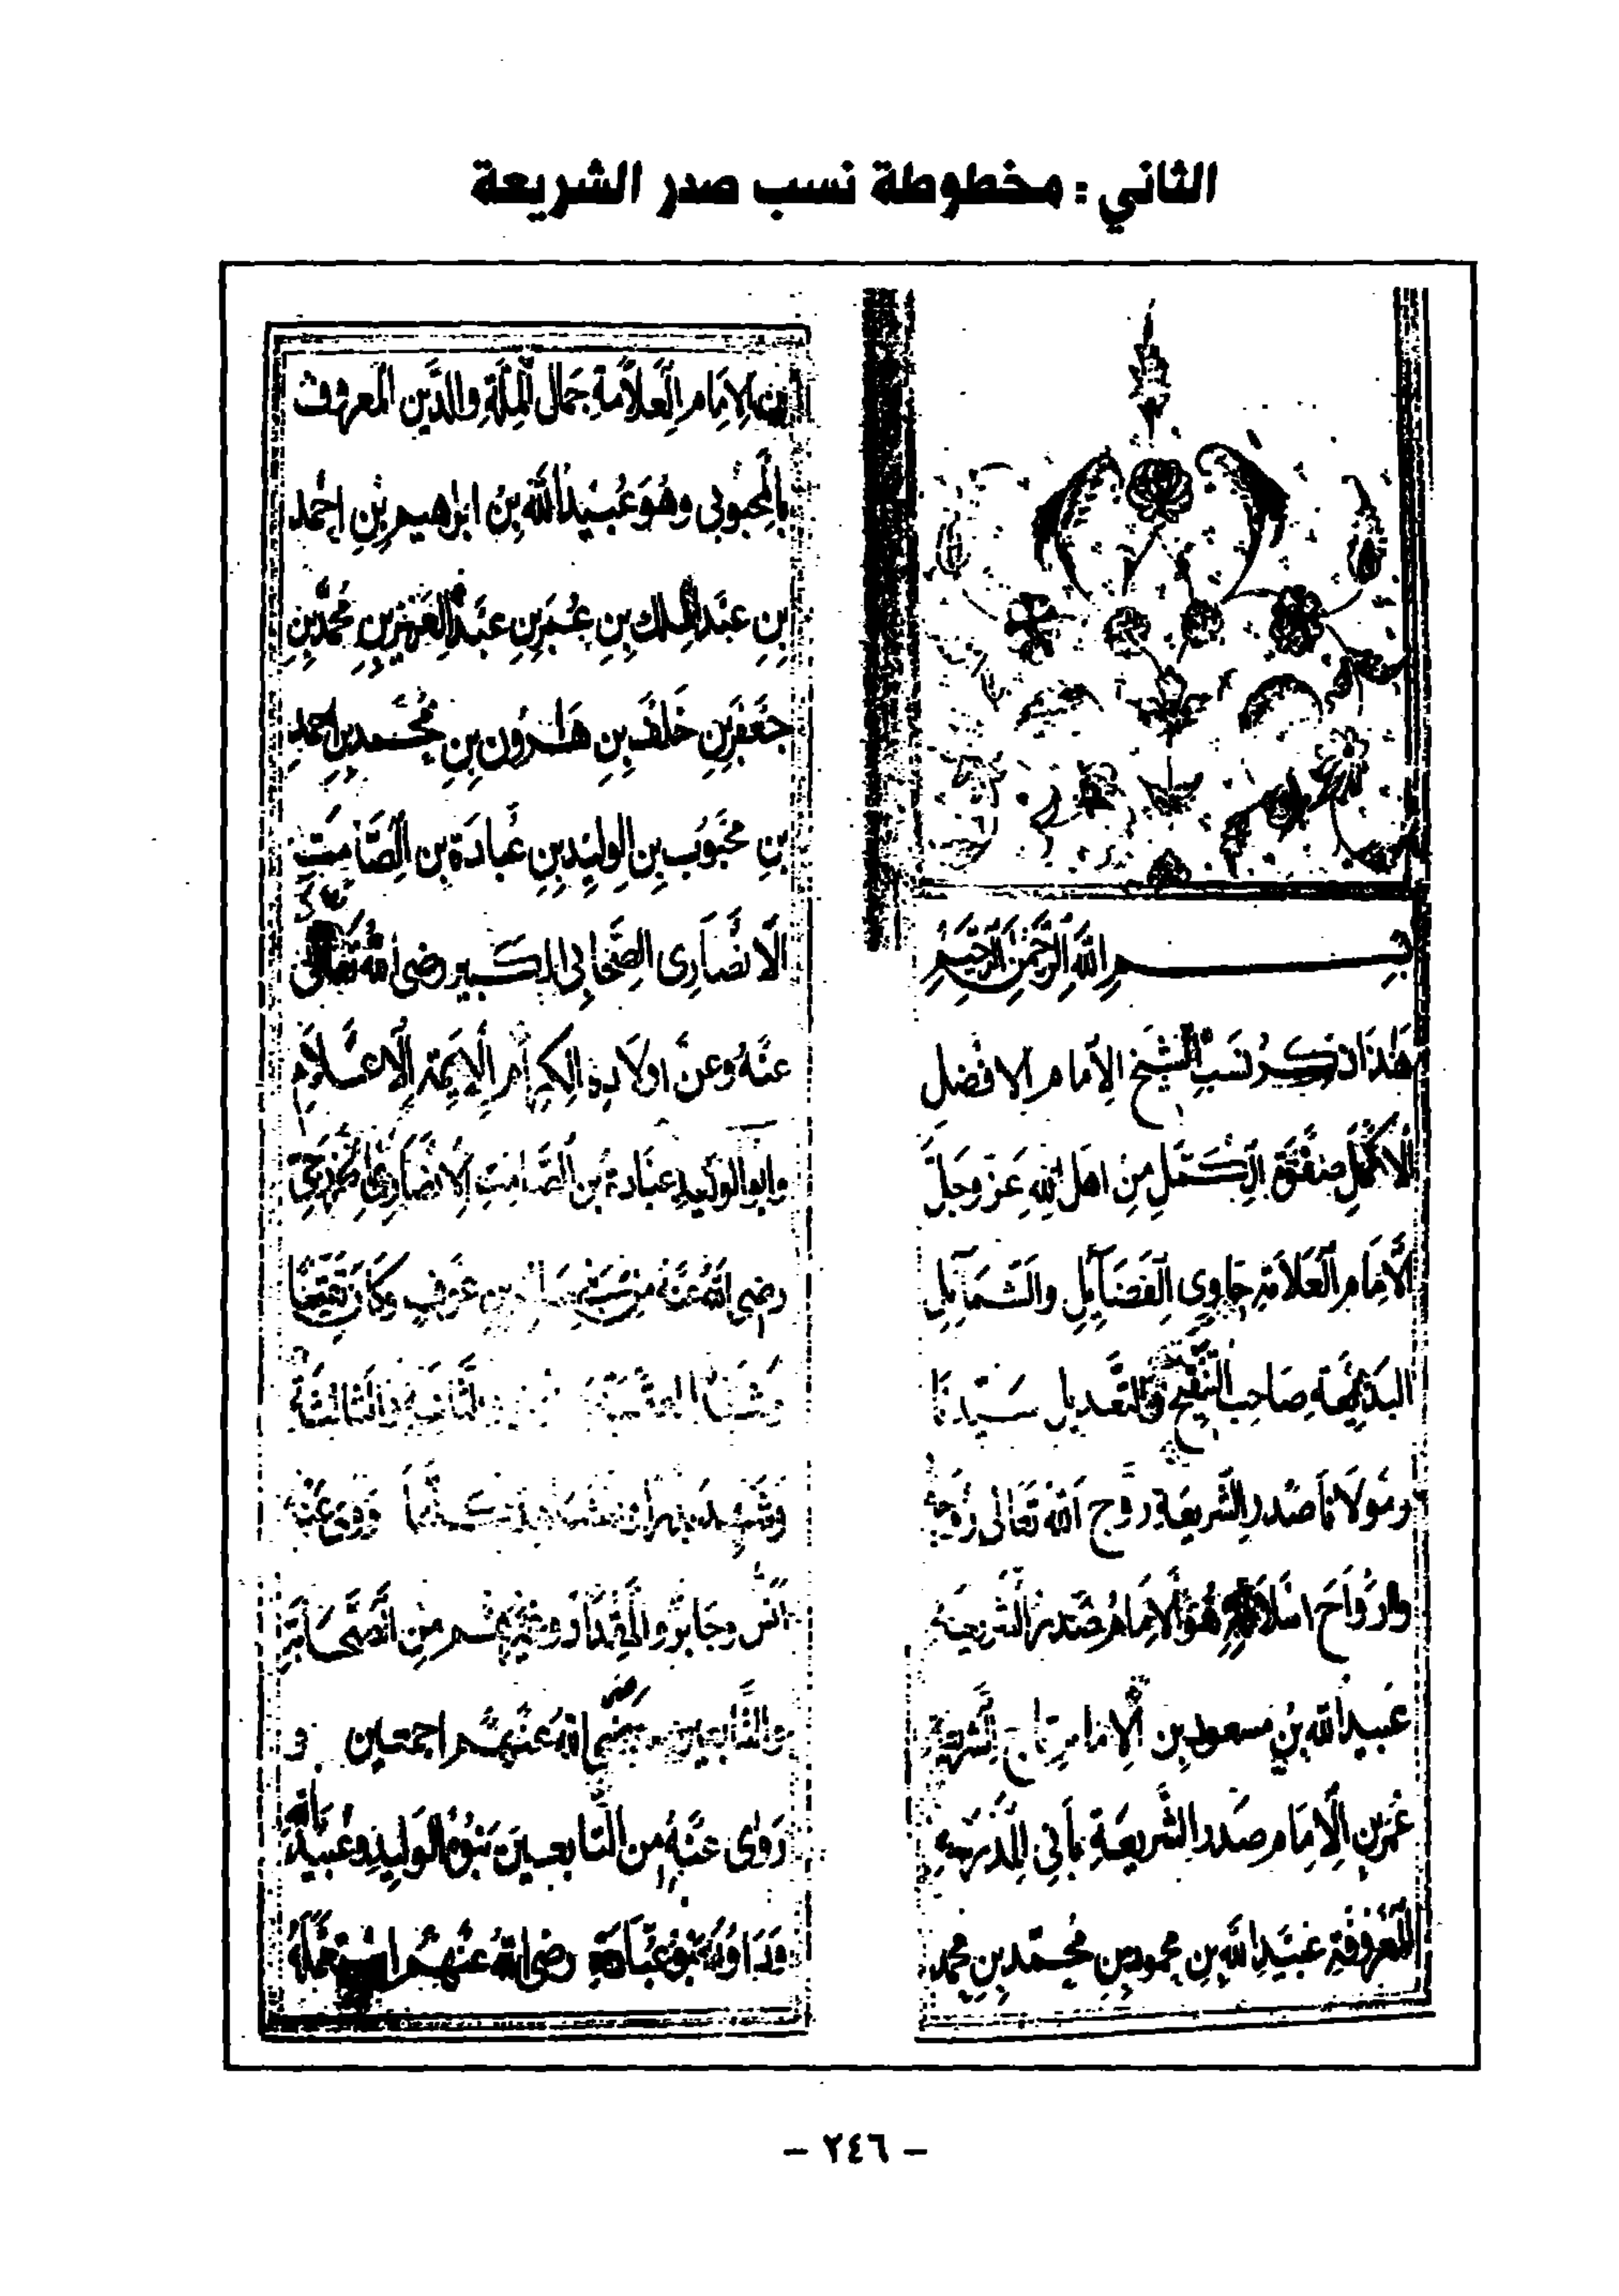 الثاني : مخطوطة نسب صدر الشريعة
بِسْمِ اللَّهِ الرَّحْمَنِ الرَّحِيمِ
هذا ذكر نسب الشيخ الامام الافضل
الاكمل من اهل الله عز وجل
الامام العلامة حاوى الفضايل والشمايل
صاحب التنقيح والتعديل سيدنا
ومولانا صدر الشريعة روح الله تعالى روحه
وارواح اسلافه هو الامام صدر الشريعة
عبيد الله بن مسعود بن الامام تاج الشريعة
عمر بن الامام صدر الشريعة
المعروفة عبيد الله بن محمود بن محمد بن محمد
بن الامام العلامة جمال الملة والدين المعروف
بالمحبوبى وهو عبيد الله بن ابرهيم بن احمد
بن عبد الملك بن عمير بن عبد العزيز بن محمد بن
جعفر بن خلف بن هارون بن محمد بن احمد
بن محبوب بن الوليد بن عبادة بن الصامت
الانصارى الصحابى الكبير رضى الله تعالى
عنه وعن اولاده الكرام الايمة الاعلام
وابو الوليد عبادة بن الصامت الانصارى الخزرجى
رضى الله عنه من بن عوف وكان نقيبا
والثانية والثالثة
وشهد بدرا كلها وروى عنه
انس وجابر والمقداد وغيرهم من الصحابة
والتابعين رضى الله عنهم اجمعين و
روى عنه من التابعين بنوه الوليد وعبيد الله
وداود بنو عبادة رضى الله عنهم
- ٢٤٦ -